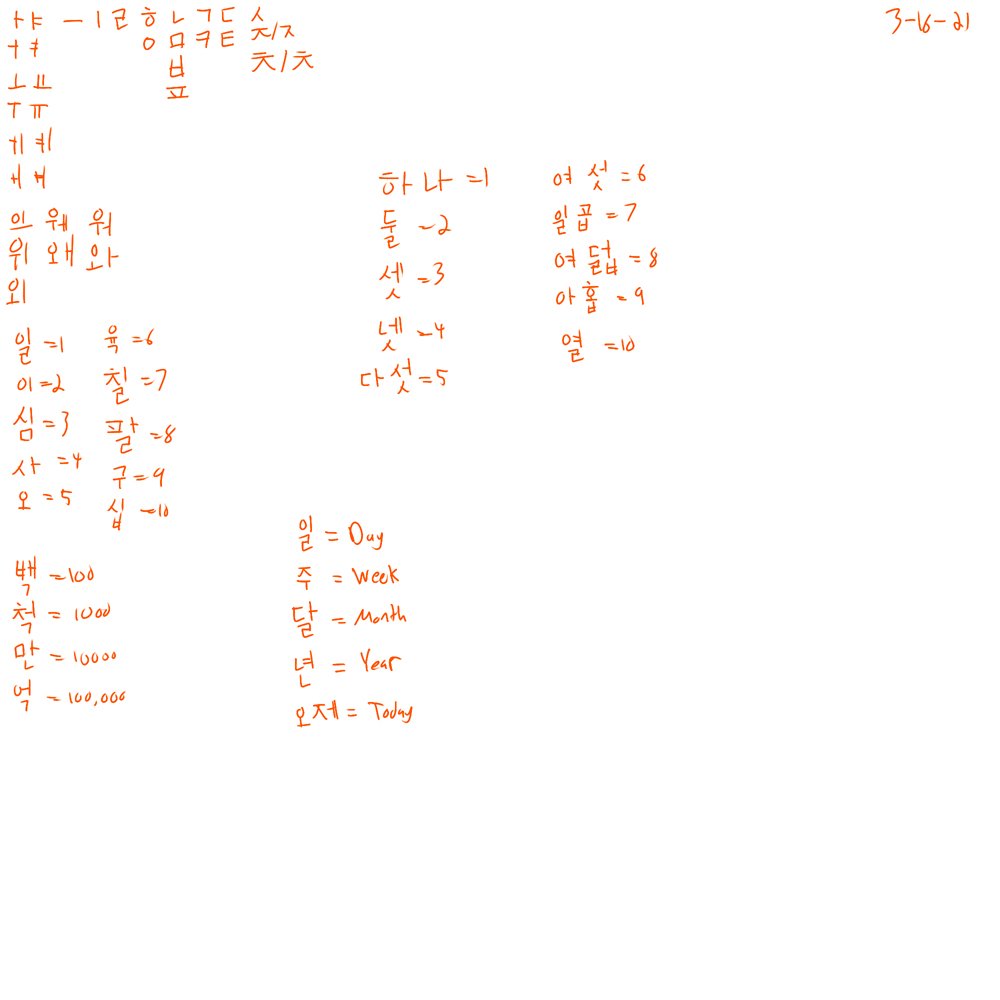 ㅏㅑ ㅡ ㅣ ㄹ ㅎ ㄴ ㄱ ㄷ ㅅ
3-16-21
ㅓㅕ ㅇ ㅁ ㅋ ㅌ ㅈ/ㅈ
ㅂ ㅊ/ㅊ
ㅗ ㅛ ㅍ
ㅜ ㅠ
ㅔ ㅖ
ㅐ ㅒ
의 웨 워
위 왜 와
외
하나 =1
둘 -2
셋 =3
넷 -4
다섯 =5
여섯 =6
일곱 =7
여덟 =8
아홉 =9
열 =10
일 =1
이 =2
심 =3
사 =4
오 =5
육 =6
칠 =7
팔 =8
구 =9
십 -10
백 =100
척 = 1000
만 = 10000
억 = 100,000
일 = Day
주 = Week
달 = Month
년 = Year
오제 = Today